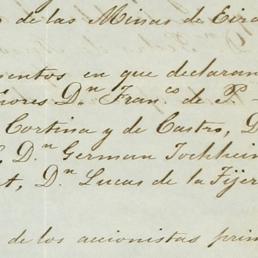 de las Minas de Eiro
mentos en que declaran
ñores Dn Franco de P.
Cortina y de Castro, D
Dn German Tochhein
t, Dn Lucas de la Fijer
de los accionistas prim